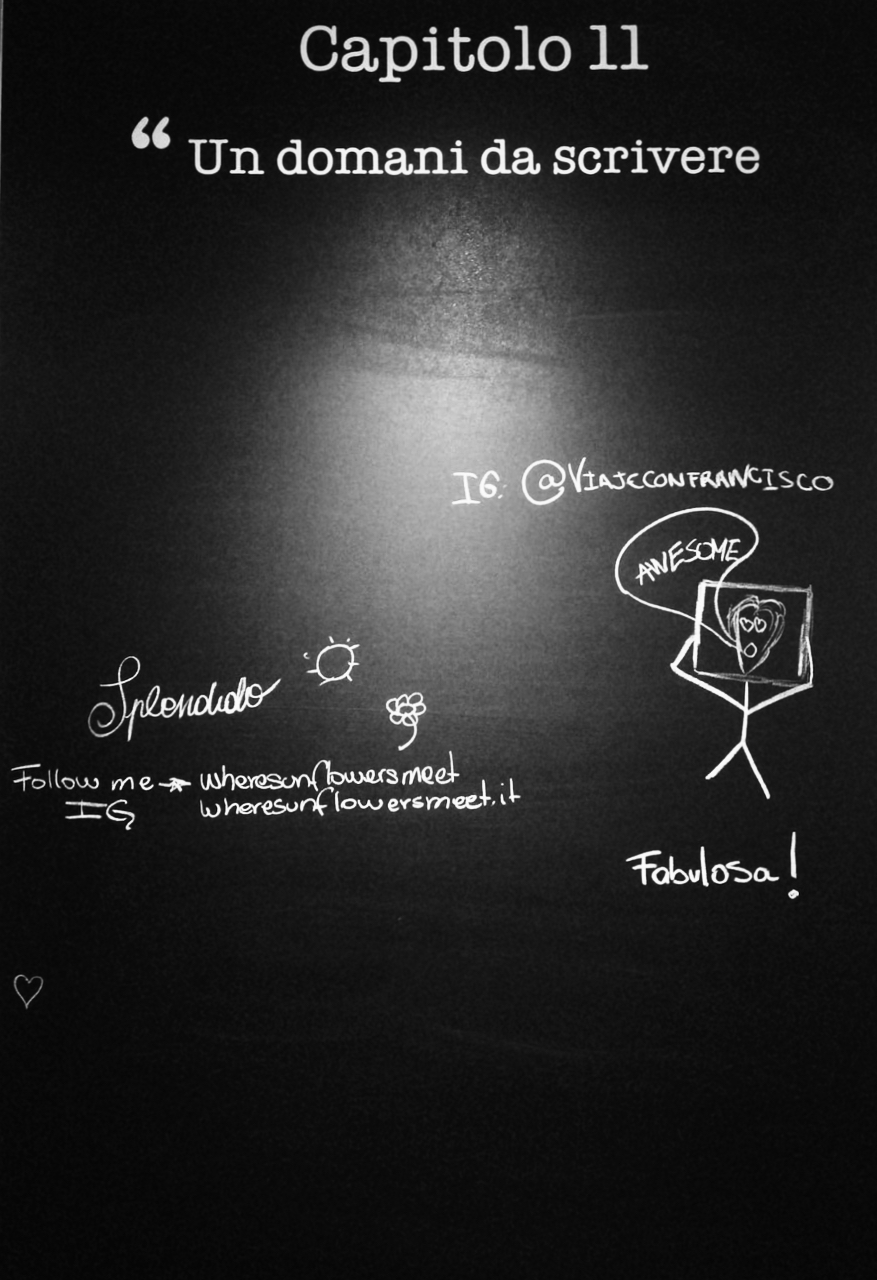 Capitolo 11
“ Un domani da scrivere
IG: @VIAJECONFRANCISCO
AWESOME
Splendido
Follow me → wheresunflowersmeet
IG wheresunflowersmeet.it
Fabulosa!